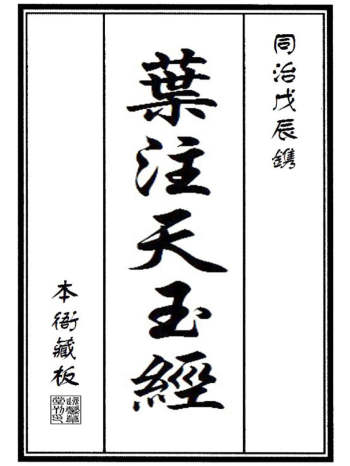 同治戊辰鐫
葉注天玉經
本衙藏板